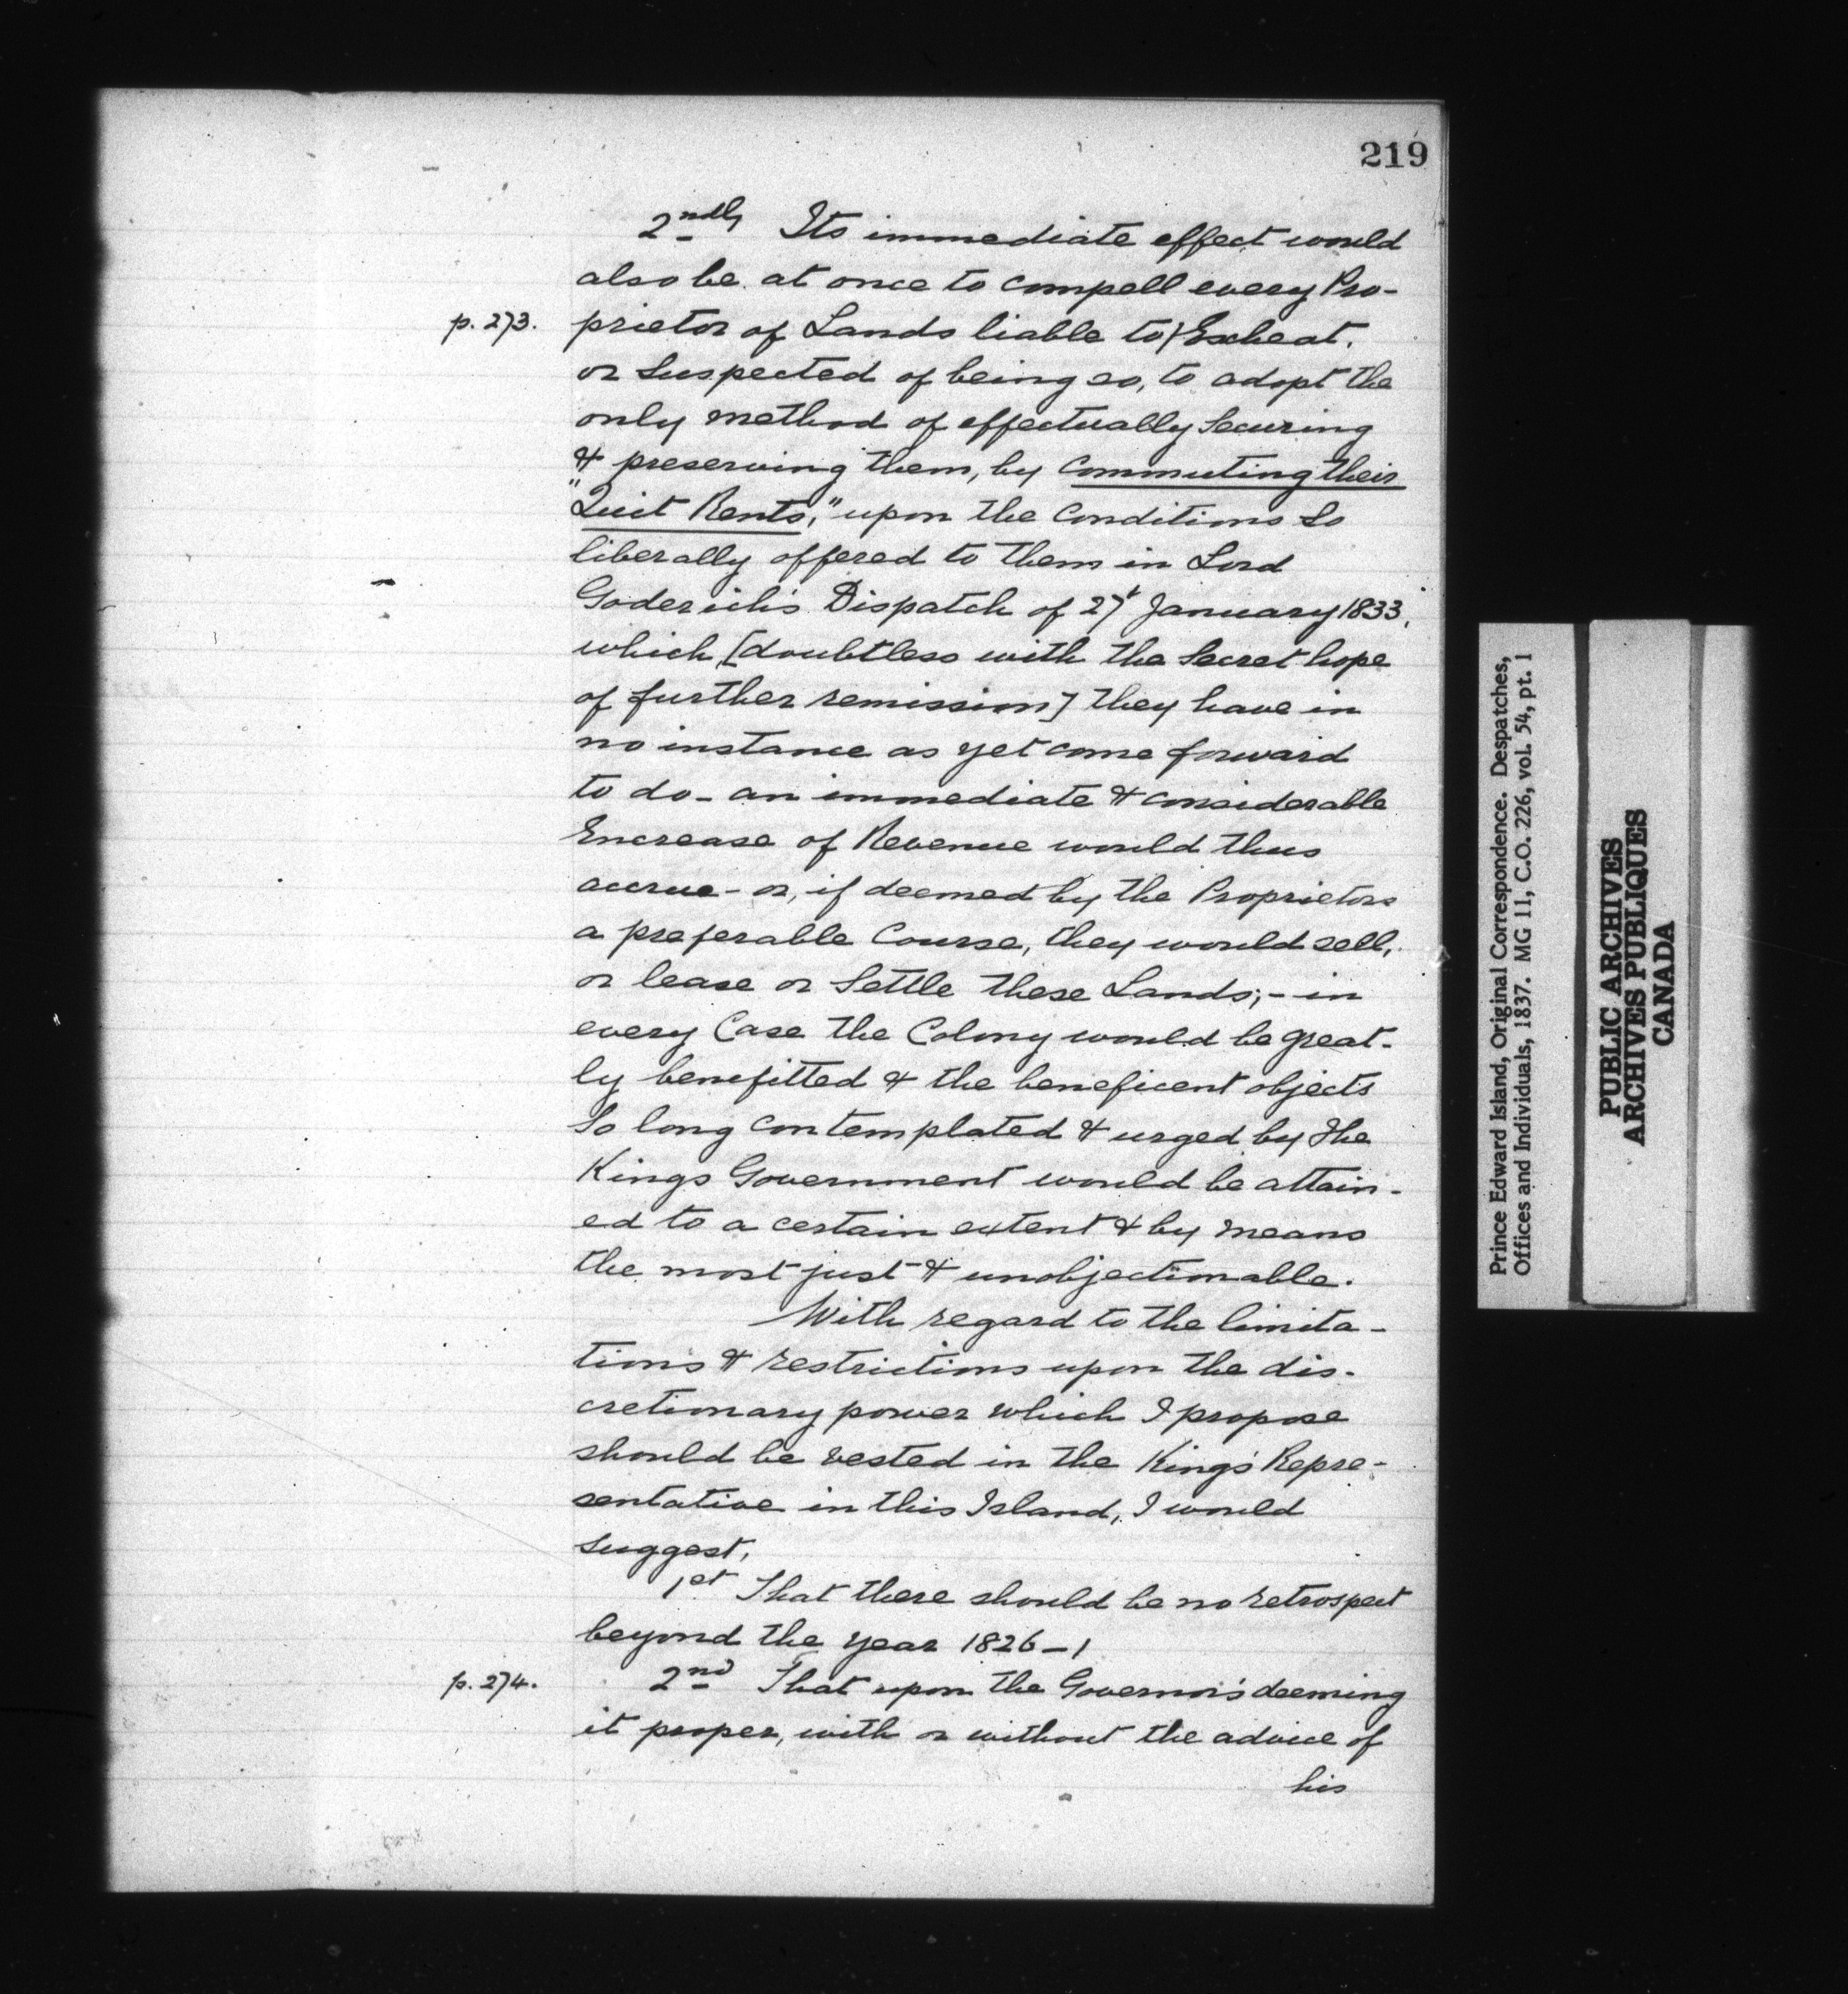 219
2ndly Its immediate effect would
also be at once to compell every Pro-
p. 273. prietor of Lands liable to / Escheat,
or suspected of being so, to adopt the
only method of effectually securing
& preserving them, by commuting their
"Quit Rents," upon the Conditions so
liberally offered to them in Lord
Goderich's Dispatch of 27t January 1833,
which, [doubtless with the secret hope
of further remission] they have in
no instance as yet come forward
to do - an immediate & considerable
Encrease of Revenue would thus
accrue - or, if deemed by the Proprietors
a preferable Course, they would sell,
or lease or settle these Lands; - in
every Case the Colony would be great-
ly benefitted & the beneficent objects
so long contemplated & urged by the
Kings Government would be attain-
ed to a certain extent & by means
the most just & unobjectionable.
With regard to the limita-
tions & restrictions upon the dis-
cretionary power which I propose
should be vested in the King's Repre-
sentative in this Island, I would
suggest,
1st That there should be no retrospect
beyond the year 1826 - 1
p. 274. 2nd That upon the Governor's deeming
it proper, with or without the advice of
his
Prince Edward Island, Original Correspondence. Despatches,
Offices and Individuals, 1837. MG 11, C.O. 226, vol. 54, pt. 1
PUBLIC ARCHIVES
ARCHIVES PUBLIQUES
CANADA